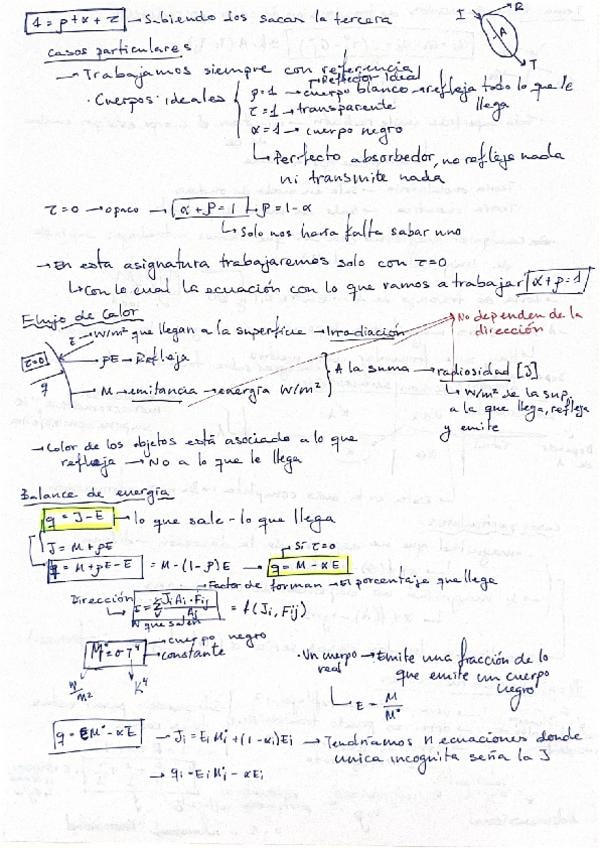 1 = ρ + α + τ → Sabiendo dos sacar la tercera
I R
A
T
Casos particulares
→ Trabajamos siempre con referencia
· Cuerpos ideales
→ Reflector ideal
ρ=1 → cuerpo blanco → refleja todo lo que le llega
τ=1 → transparente
α=1 → cuerpo negro
↳ Perfecto absorbedor, no refleja nada
ni transmite nada
τ=0 → opaco → α+ρ=1 → ρ=1-α
↳ Solo nos haría falta sabar uno
→ En esta asignatura trabajaremos solo con τ=0
↳ Con lo cual la ecuación con lo que vamos a trabajar α+ρ=1
Flujo de calor
→ No dependen de la
dirección
E → W/m² que llegan a la superficie → Irradiación
τ=0
ρE → Refleja
q
M → emitancia → energía W/m²
A la suma → radiosidad [J]
↳ W/m² de la sup.
a la que llega, refleja
y emite
→ Color de los objetos está asociado a lo que
refleja → No a lo que le llega
Balance de energía
q = J - E → lo que sale - lo que llega
J = M + ρE
q = M + ρE - E = M - (1-ρ)E → q = M - αE
→ Si τ=0
→ Factor de forman → El porcentaje que llega
Dirección
= f(Ji, Fij)
W que salen
M° = σT⁴
→ cuerpo negro
→ constante
W/m²
K⁴
· Un cuerpo real → Emite una fracción de lo
que emite um cuerpo
negro
↳ E = M/M°
q = EM° - αE → Ji = EiMi° + (1-αi)Ei → Tendríamos n ecuaciones donde
unica incognita seña la J
→ qi = EiMi° - αEi